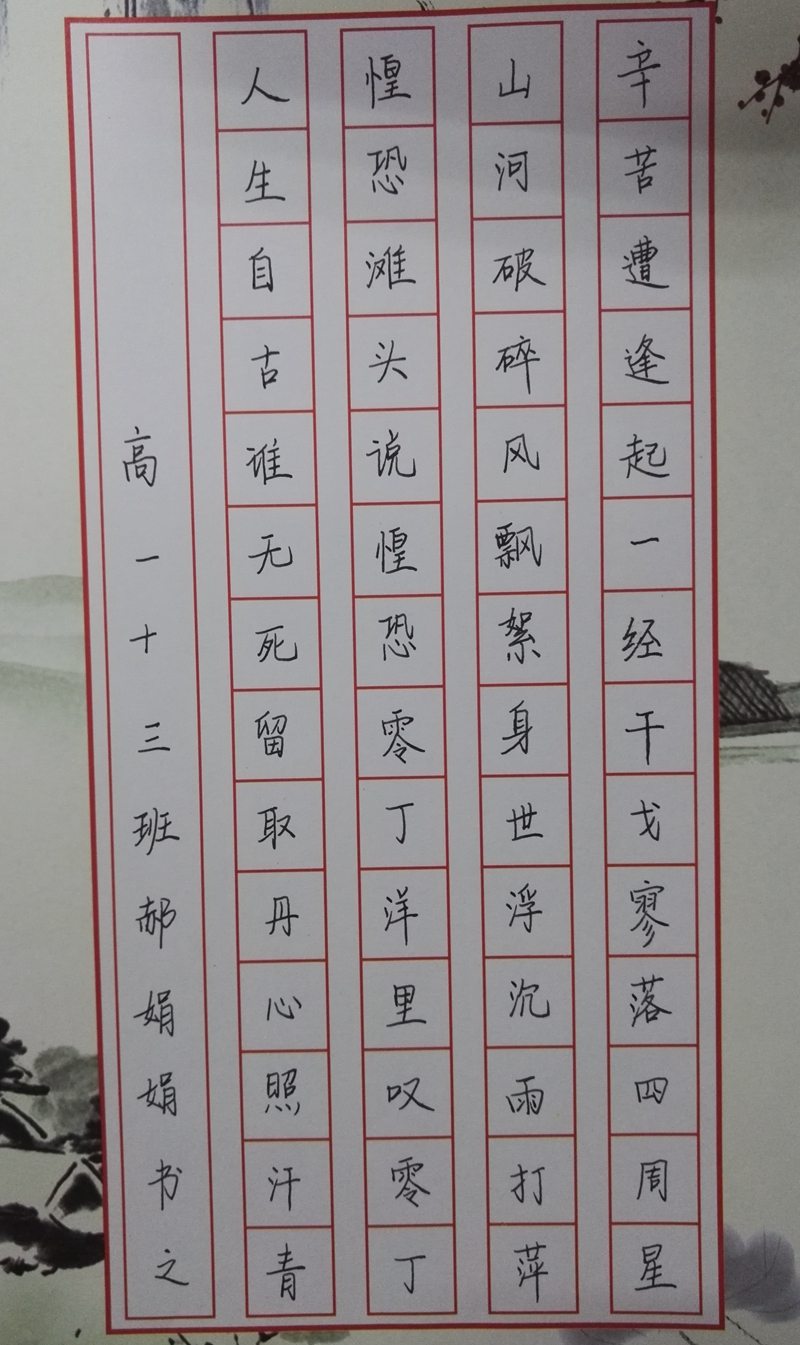 辛苦遭逢起一经干戈寥落四周星
山河破碎风飘絮身世浮沉雨打萍
惶恐滩头说惶恐零丁洋里叹零丁
人生自古谁无死留取丹心照汗青
高一十三班郝娟娟书之